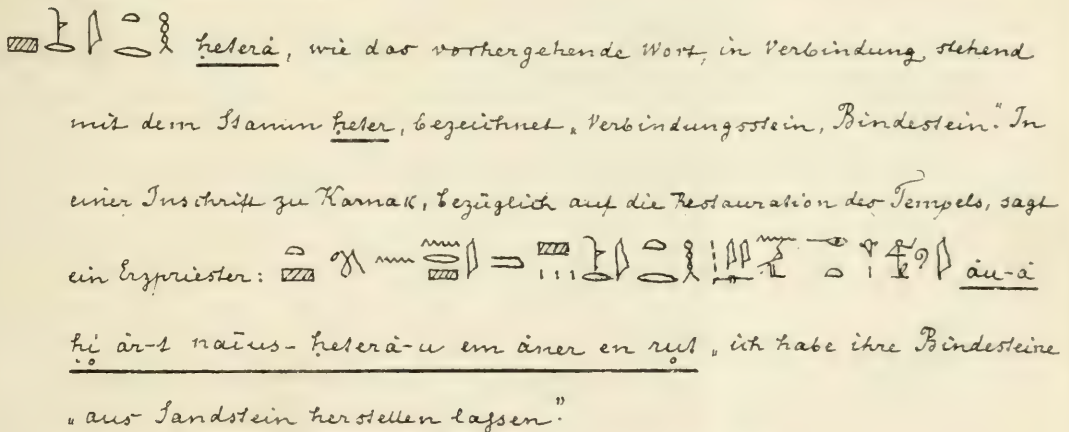 ḥeterȧ, wie das vorhergehende Wort, in Verbindung stehend
mit dem Stamm ḥeter, bezeichnet „Verbindungsstein, Bindestein." In
einer Inschrift zu Karnak, bezüglich auf die Restauration des Tempels, sagt
ein Erzpriester: ȧu-ȧ
ḥi ȧr-t naïus-ḥeterȧ-u em ȧner en ruṭ „ich habe ihre Bindesteine
„aus Sandstein herstellen lassen".